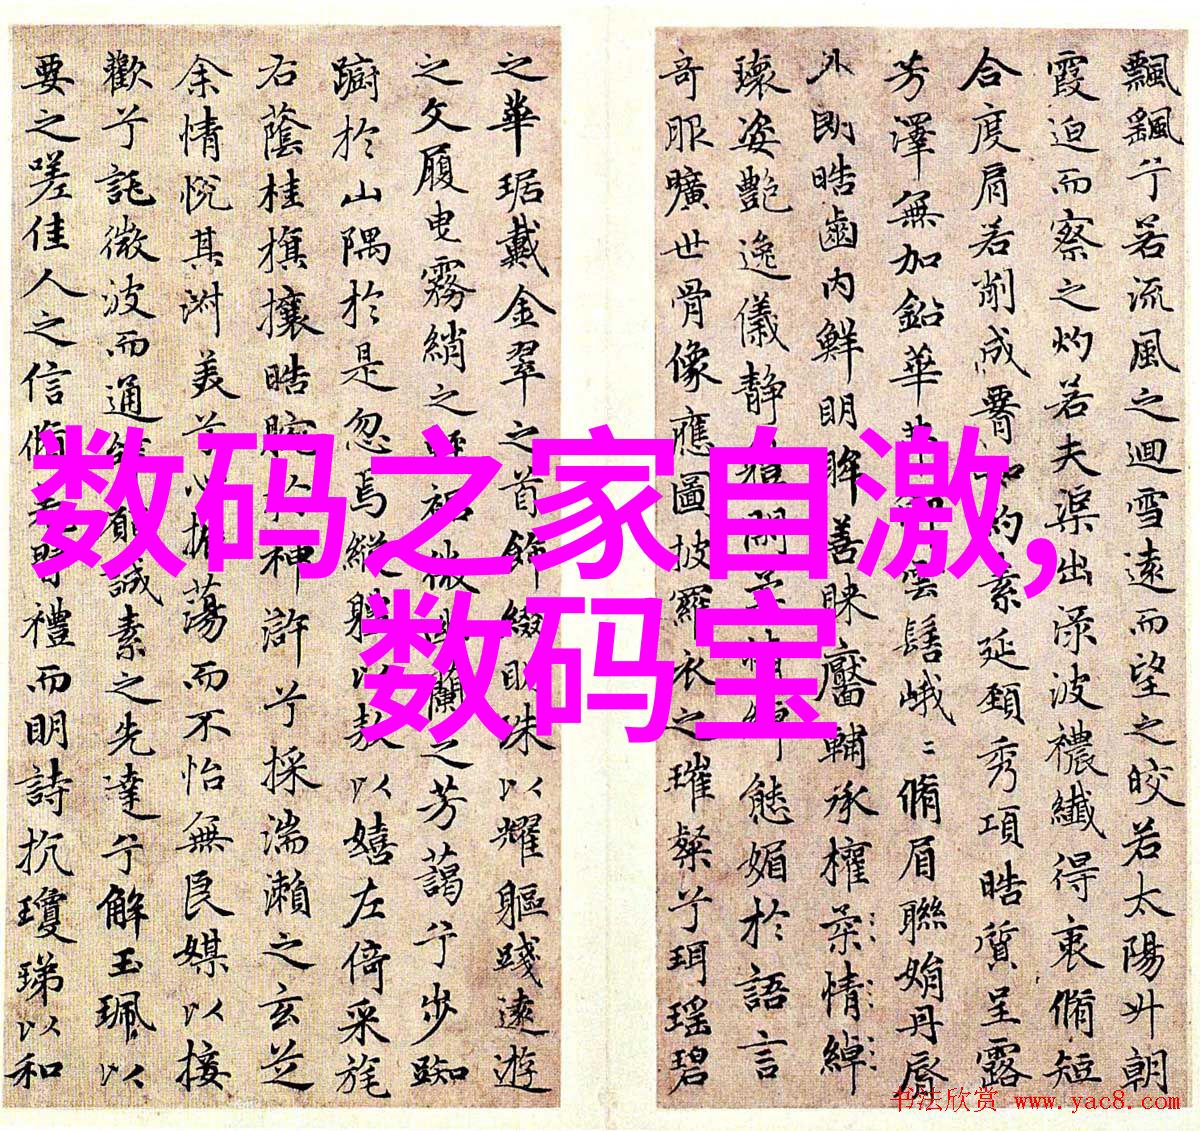 飄飖兮若流風之迴雪遠而望之皎若太陽升朝
霞迫而察之灼若夫渠出渌波襛纖得衷脩短
合度肩若削成𦝫如約素延頸秀項皓質呈露
芳澤無加鉛華弗御雲髻峨〻脩眉聯娟丹脣
外朗皓齒内鮮明眸善睞靨輔承權柔情綽
瓌姿艷逸儀静體閑柔情綽態媚於語言
奇服曠世骨像應圖披羅衣之璀粲兮珥瑶碧
之華琚戴金翠之首飾綴明珠以耀軀踐遠遊
之文履曳霧綃之輕裾微幽蘭之芳藹兮步踟
躕於山隅於是忽焉縱體以敖以嬉左倚采旄
右蔭桂旗攘皓腕於神滸兮採湍瀨之玄芝
余情悅其淑美兮心振蕩而不怡無良媒以接
歡兮託微波而通辭願誠素之先達兮解玉珮以
要之嗟佳人之信脩羌習禮而明詩抗瓊珶以和
数码之家自激,
数码宝
书法欣赏 www.yac8.com